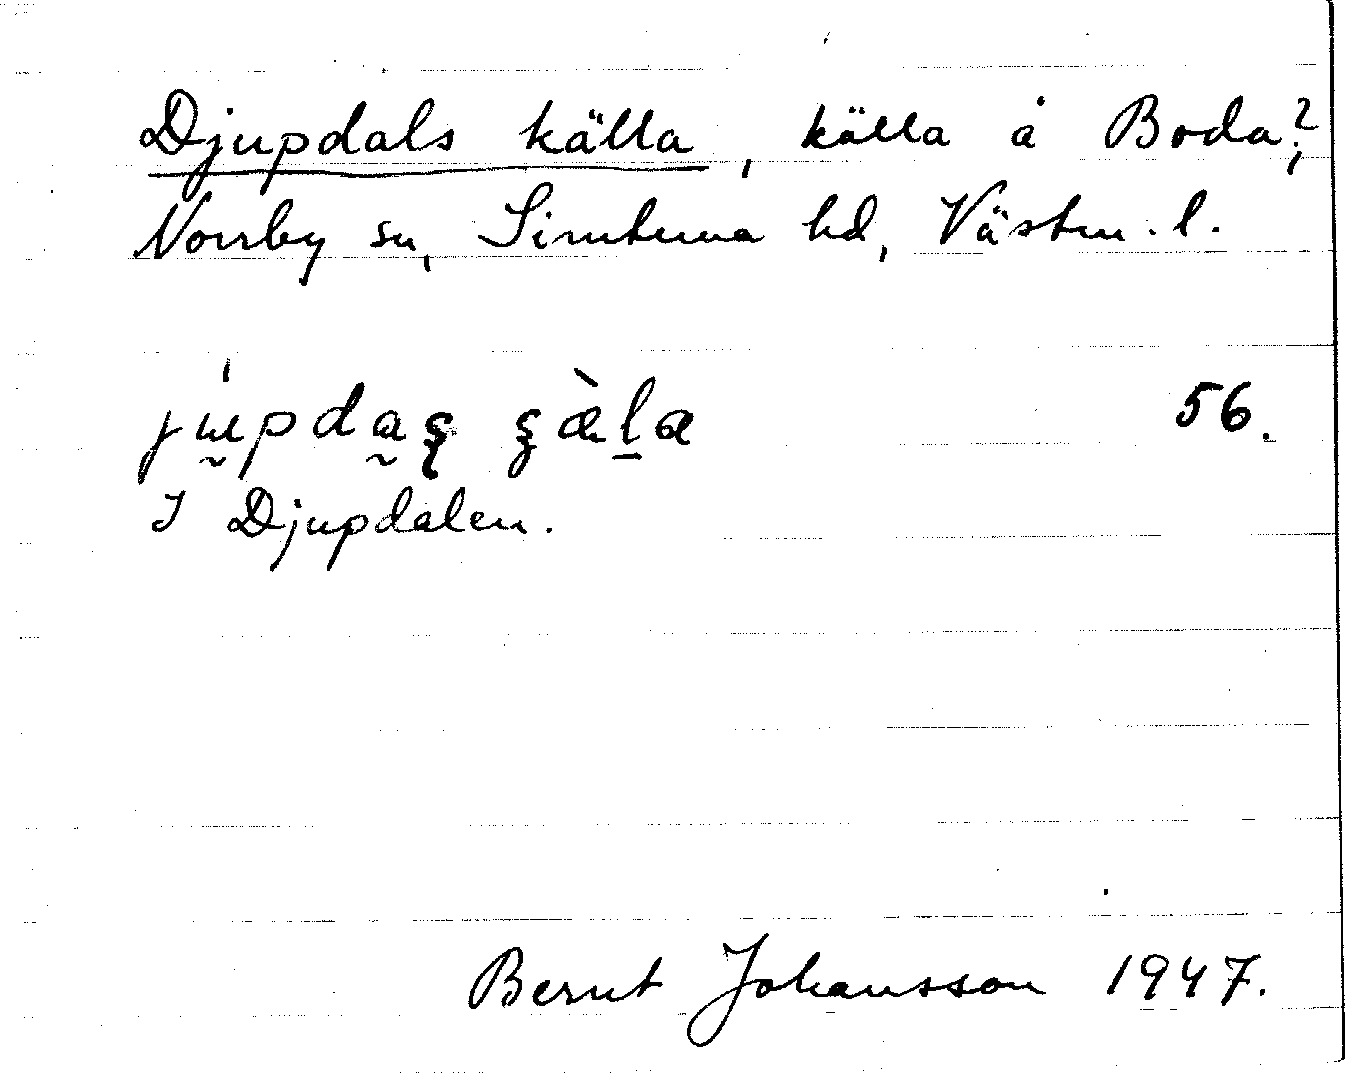 Djupdals källa, källa å Boda?,
Norrby sn, Simtuna hd, Västm. l.
56.
I Djupdalen.
Bernt Johansson 1947.